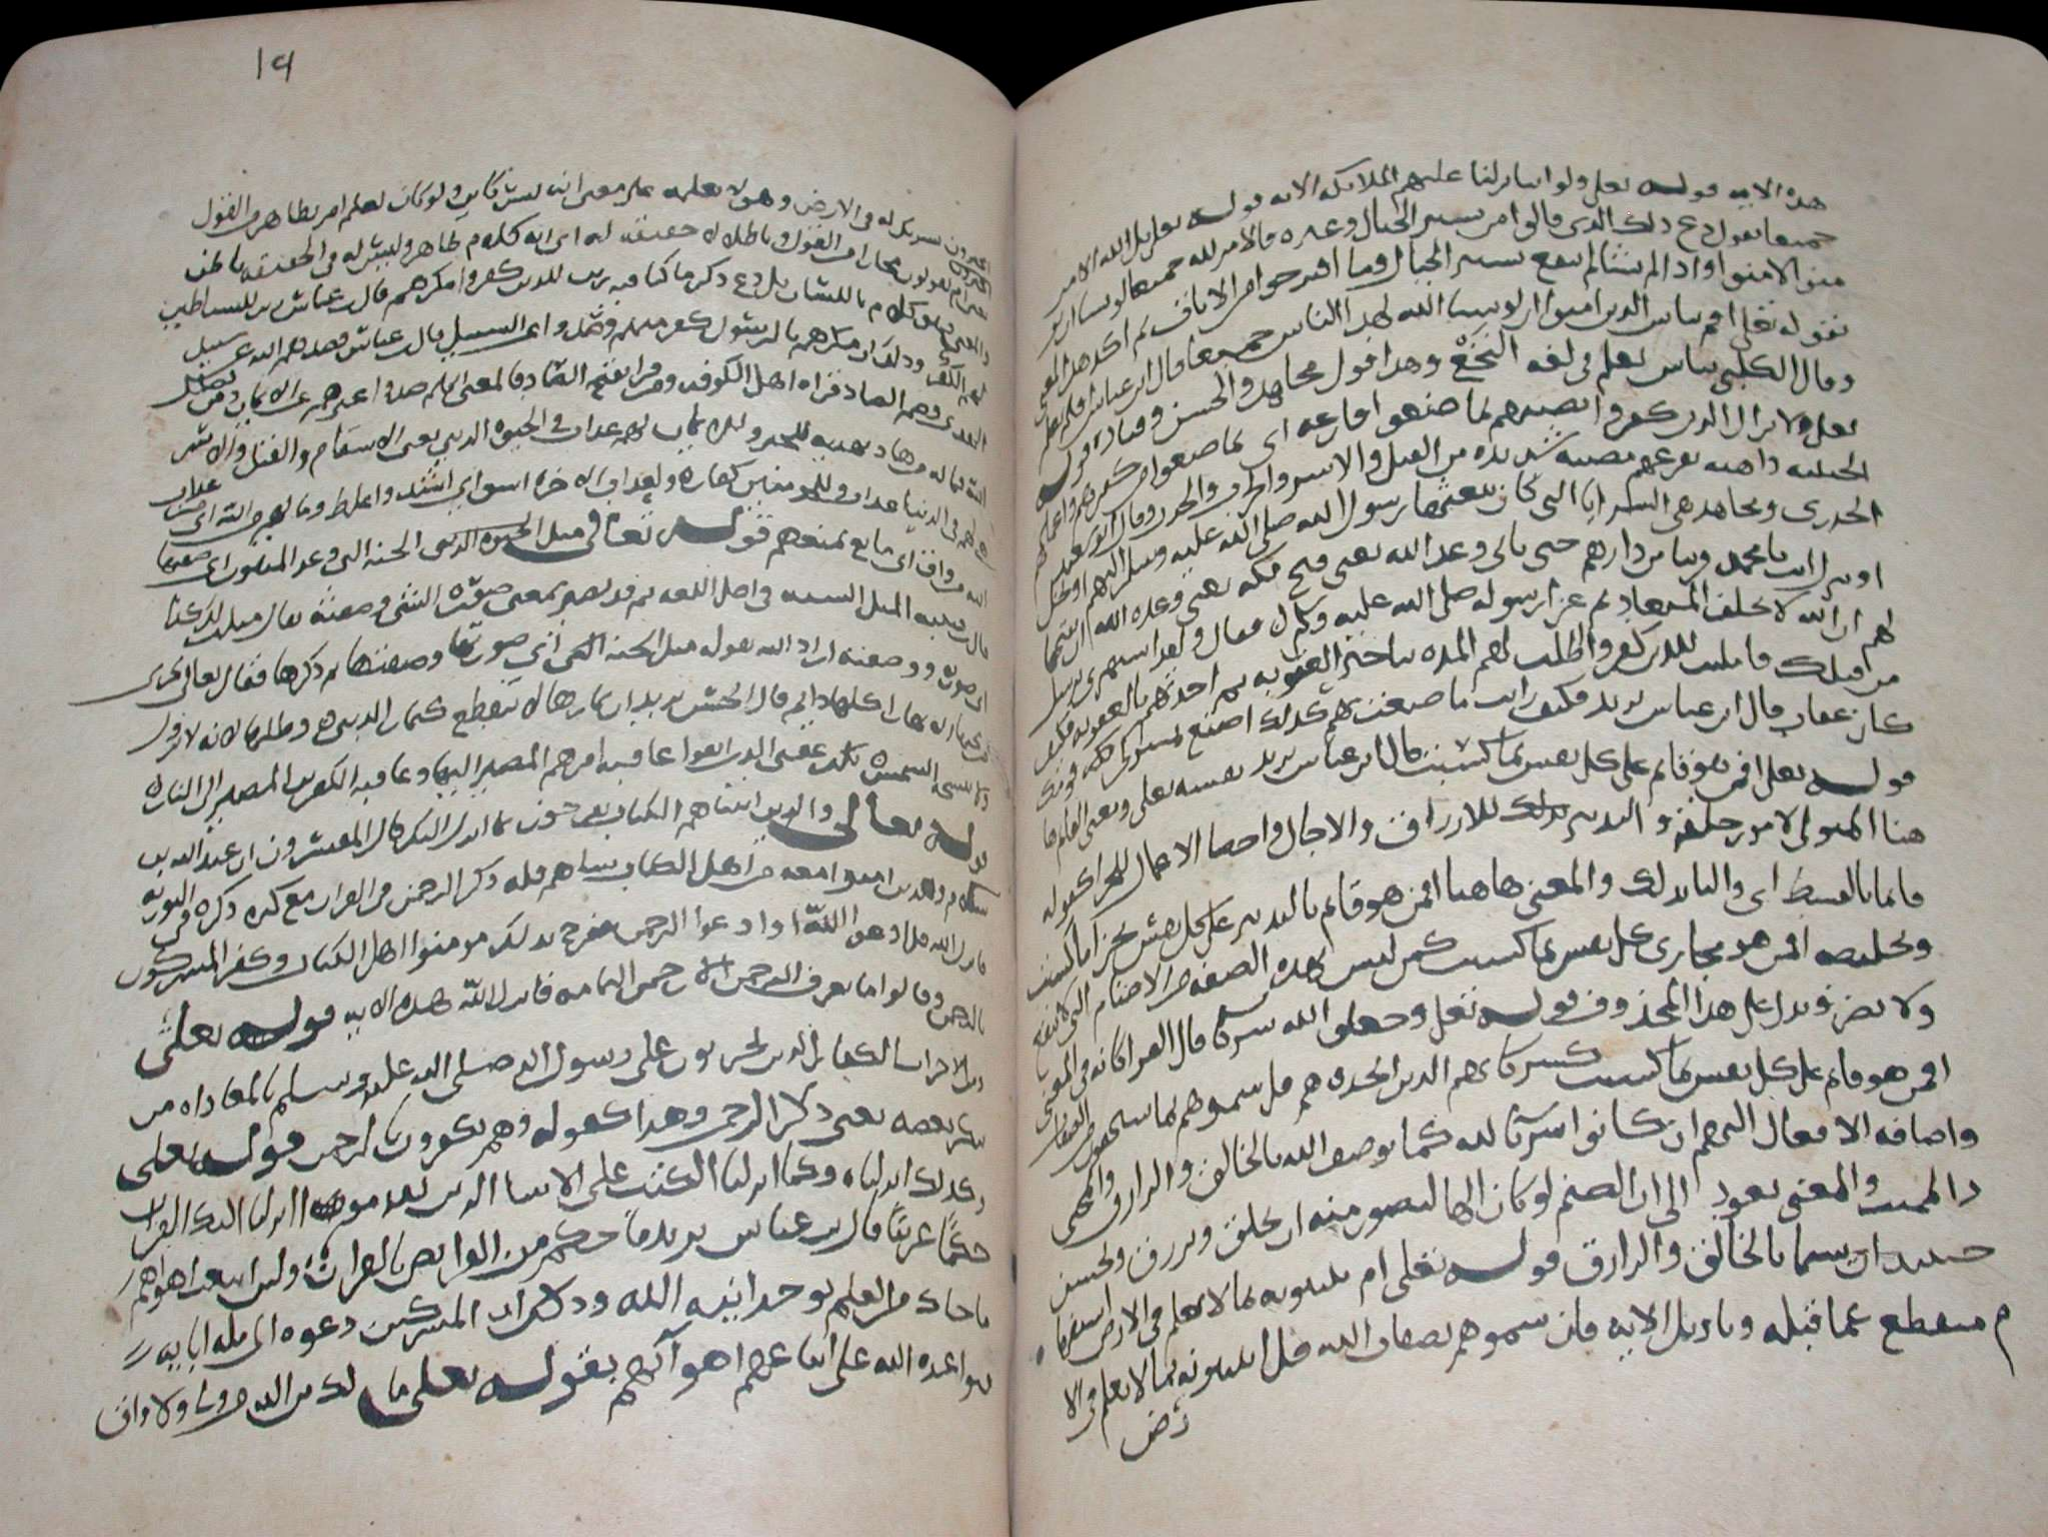 هذه الايه قوله تعلى ولو اننا نزلنا عليهم الملائكه الايه قوله تعلى بل لله الامر
جميعا يقول دع ذلك الذى قالوا من تسيير الجبال وغيره فالامر لله جميعا لو شا ان
يؤمنوا لامنوا واذا لم يشا لم ينفع تسيير الجبال وما اقترحوا من الايات ثم اكد هذا المعنى
بقوله تعلى افلم يياس الذين امنوا ان لو يشا الله لهدا الناس جميعا قال ابن عباس افلم يعلم
وقال الكلبى يياس يعلم فى لغه النخع وهذا قول مجاهد والحسن وقتاده قوله
تعلى ولا يزال الذين كفروا تصيبهم بما صنعوا قارعه اى بما صنعوا من كفرهم واعمالهم
الخبيثه داهيه تقرعهم مصيبه شديده من القتل والاسر والحرب والجدب وقال ابو سعيد
الخدرى ومجاهد هى السرايا التى كان يبعثها رسول الله صلى الله عليه وسلم اليهم او تحل
او تنزل انت يا محمد قريبا من دارهم حتى ياتى وعد الله يعنى فتح مكه يعنى وعده الله ان يفتحها
لهم ان الله لا يخلف الميعاد ثم عزا رسوله صلى الله عليه وسلم فقال ولقد استهزى برسل
من قبلك فامليت للذين كفروا اطلت لهم المده بتاخير العقوبه ثم اخذتهم بالعقوبه فكيف
كان عقاب قال ابن عباس يريد فكيف رايت ما صنعت بهم كذلك اصنع بمشركى مكه قوله
قوله تعلى افمن هو قائم على كل نفس بما كسبت قال ابن عباس يريد نفسه تعلى ومعنى القائم ها
هنا المتولى لامور خلقه والتدبير للارزاق والاجال واحصا الاعمال للجزا كقوله
قائما بالقسط اى واليا بذلك والمعنى هاهنا افمن هو قائم بالتدبير على كل نفس بجزا ما كسبت
وتلخيصه افمن هو مجازى كل نفس بما كسبت كمن ليس بهذه الصفه من الاصنام التى لا تنفع
ولا تضر ويدل على هذا المحذوف قوله تعلى وجعلوا لله شركا قال الفرا كانه فى المعنى
افمن هو قائم على كل نفس بما كسبت كشركائهم الذين اتخذوهم قل سموهم بما يستحقون من الصفات
واضافه الافعال اليهم ان كانوا شركا لله كما يوصف الله بالخالق والرازق والمحيى
والمميت والمعنى يعود الى ان الصنم لو كان الها لتصور منه ان يخلق ويرزق ويحسن
حينئذ ان يسما بالخالق والرازق قوله تعلى ام تنبئونه بما لا يعلم فى الارض استفها
م منقطع عما قبله وتاويل الايه فان سموهم بصفات الله قل اتنبئونه بما لا يعلم فى الا
رض
١٩
شريك له فى الارض وهو لا يعلمه على معنى انه ليس ولو كان لعلم ام بظاهر من القول
ام يقولون مجازا من القول وباطلا لا حقيقه له اى انه كلام ظاهر وليس له فى الحقيقه باطن
كلام باللسان بل دع ذكر ما كنا فيه زين للذين كفروا مكرهم قال ابن عباس زين للشياطين
الكفر وذلك ان مكرهم بالرسول كفر منهم وصدوا عن السبيل قال ابن عباس وصدهم الله عن سبيل
الهدى وضم الصاد قراه اهل الكوفه ومن قرا بفتح الصاد فالمعنى انهم صدوا غيرهم عن الايمان ومن يضلل
الله فما له من هاد لهم عذاب فى الحيوه الدنيا يعنى الاسقام والقتل والاسر
فى الدنيا عذاب وللمومنين كفاره ولعذاب الاخره اشق اى اشد واغلظ وما لهم من الله اى من عذاب
الله من واق اى مانع يمنعهم قوله تعالى مثل الجنه التى وعد المتقون اى صفتها
المثل الشبه فى اصل اللغه ثم قد يصير بمعنى صوره الشى وصفته يقال مثلت لك كذا
اى صورته ووصفته اراد الله بقوله مثل الجنه التى اى صورتها وصفتها ثم ذكرها فقال تعالى تجرى
من تحتها الانهار اكلها دائم قال الحسن يريد ان ثمارها لا تنقطع كثمار الدنيا وظلها لانه لا يزول
ولا تنسخه الشمس تلك عقبى الذين اتقوا عاقبه امرهم المصير اليها وعاقبه الكفرين المصير الى النار
قوله تعالى والذين اتيناهم الكتاب يفرحون بما انزل اليك قال المفسرون ان عبدالله بن
سلام والذين امنوا معه من اهل الكتاب ساهم قله ذكر الرحمن فى القران مع كثره ذكره فى التوريه
فانزل الله قل ادعوا الله او ادعوا الرحمن ففرح بذلك مومنوا اهل الكتاب وكفر المشركون
بالرحمن وقالوا ما نعرف الرحمن الا رحمن اليمامه فانزل الله هذه الايه قوله تعلى
ومن الاحزاب الكفار الذين تحزبوا على رسول الله صلى الله عليه وسلم بالمعاداه من
ينكر بعضه يعنى ذكر الرحمن وهذا كقوله وهم يكفرون بالرحمن قوله تعلى
وكذلك انزلناه وكما انزلنا الكتب على الانبيا الذين تقدموه انزلنا اليك القران
حكما عربيا قال ابن عباس يريد ما حكم من الفرايض بالقران ولئن اتبعت اهواهم
ما جاك من العلم بوحدانيه الله وذلك ان المشركين دعوه الى مله ابايه
فتواعده الله على اتباعهم اهوآئهم بقوله تعلى مالك من الله من ولى ولا واق